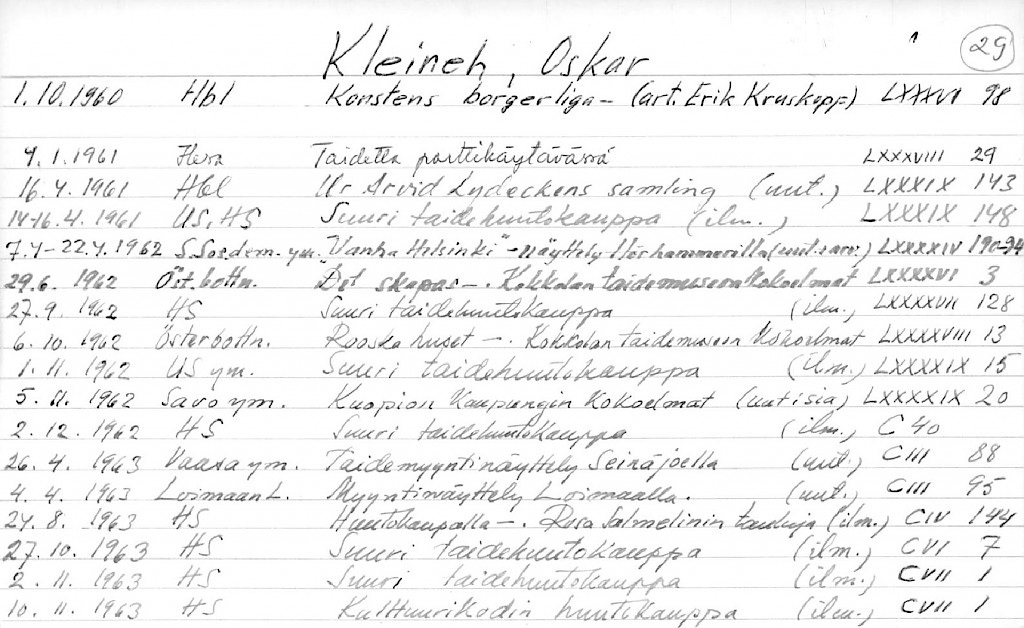 1 29
Kleineh, Oskar
1.10.1960 Hbl Konstens borgerliga – (art. Erik Kruskopf) LXXXVI 98
4.1.1961 Taidetta porttikäytävässä LXXXVIII 29
16.4.1961 Hbl Ur Arvid Lydeckens samling (uut.) LXXXIX 143
14-16.4.1961 US, HS Suuri taidehuutokauppa (ilm.) LXXXIX 148
7.4–22.4.1962 S.Sosdem. ym. "Vanha Helsinki"-näyttely Hörhammerilla (uut. arv.) LXXXXIV 190-94
29.6.1962 Öst.bottn. "Det skapas –. Kokkolan taidemuseon Kokoelmat LXXXXVI 3
27.9.1962 HS Suuri taidehuutokauppa (ilm.) LXXXXVII 128
6.10.1962 Österbottn. Rooska huset –. Kokkolan taidemuseon Kokoelmat LXXXXVIII 13
1.11.1962 US ym. Suuri taidehuutokauppa (ilm.) LXXXXIX 15
5.11.1962 Savo ym. Kuopion Kaupungin Kokoelmat (uutisia) LXXXXIX 20
2.12.1962 HS Suuri taidehuutokauppa (ilm.) C 40
26.4.1963 Vaasa ym. Taidemyyntinäyttely Seinäjoella (uut.) CIII 88
4.4.1963 Loimaan L. Myyntinäyttely Loimaalla. (uut.) CIII 95
24.8.1963 HS Huutokaupalla –. Rosa Salmelinin tauluja (ilm.) CIV 144
27.10.1963 HS Suuri taidehuutokauppa (ilm.) CVI 7
2.11.1963 HS Suuri taidehuutokauppa (ilm.) CVII 1
10.11.1963 HS Kulttuurikodin huutokauppa (ilm.) CVII 1